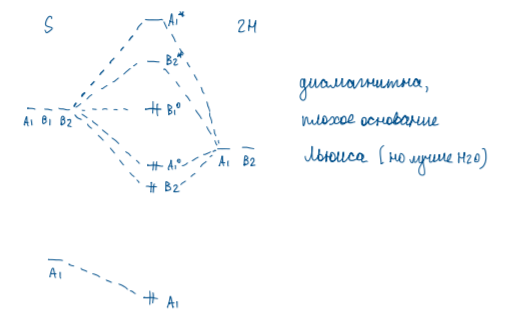 S
2H
A₁*
B₂*
A₁ B₁ B₂
B₁⁰
A₁⁰
B₂
A₁ B₂
A₁
A₁
диамагнитна,
плохое основание
Льюиса (но лучше H₂O)